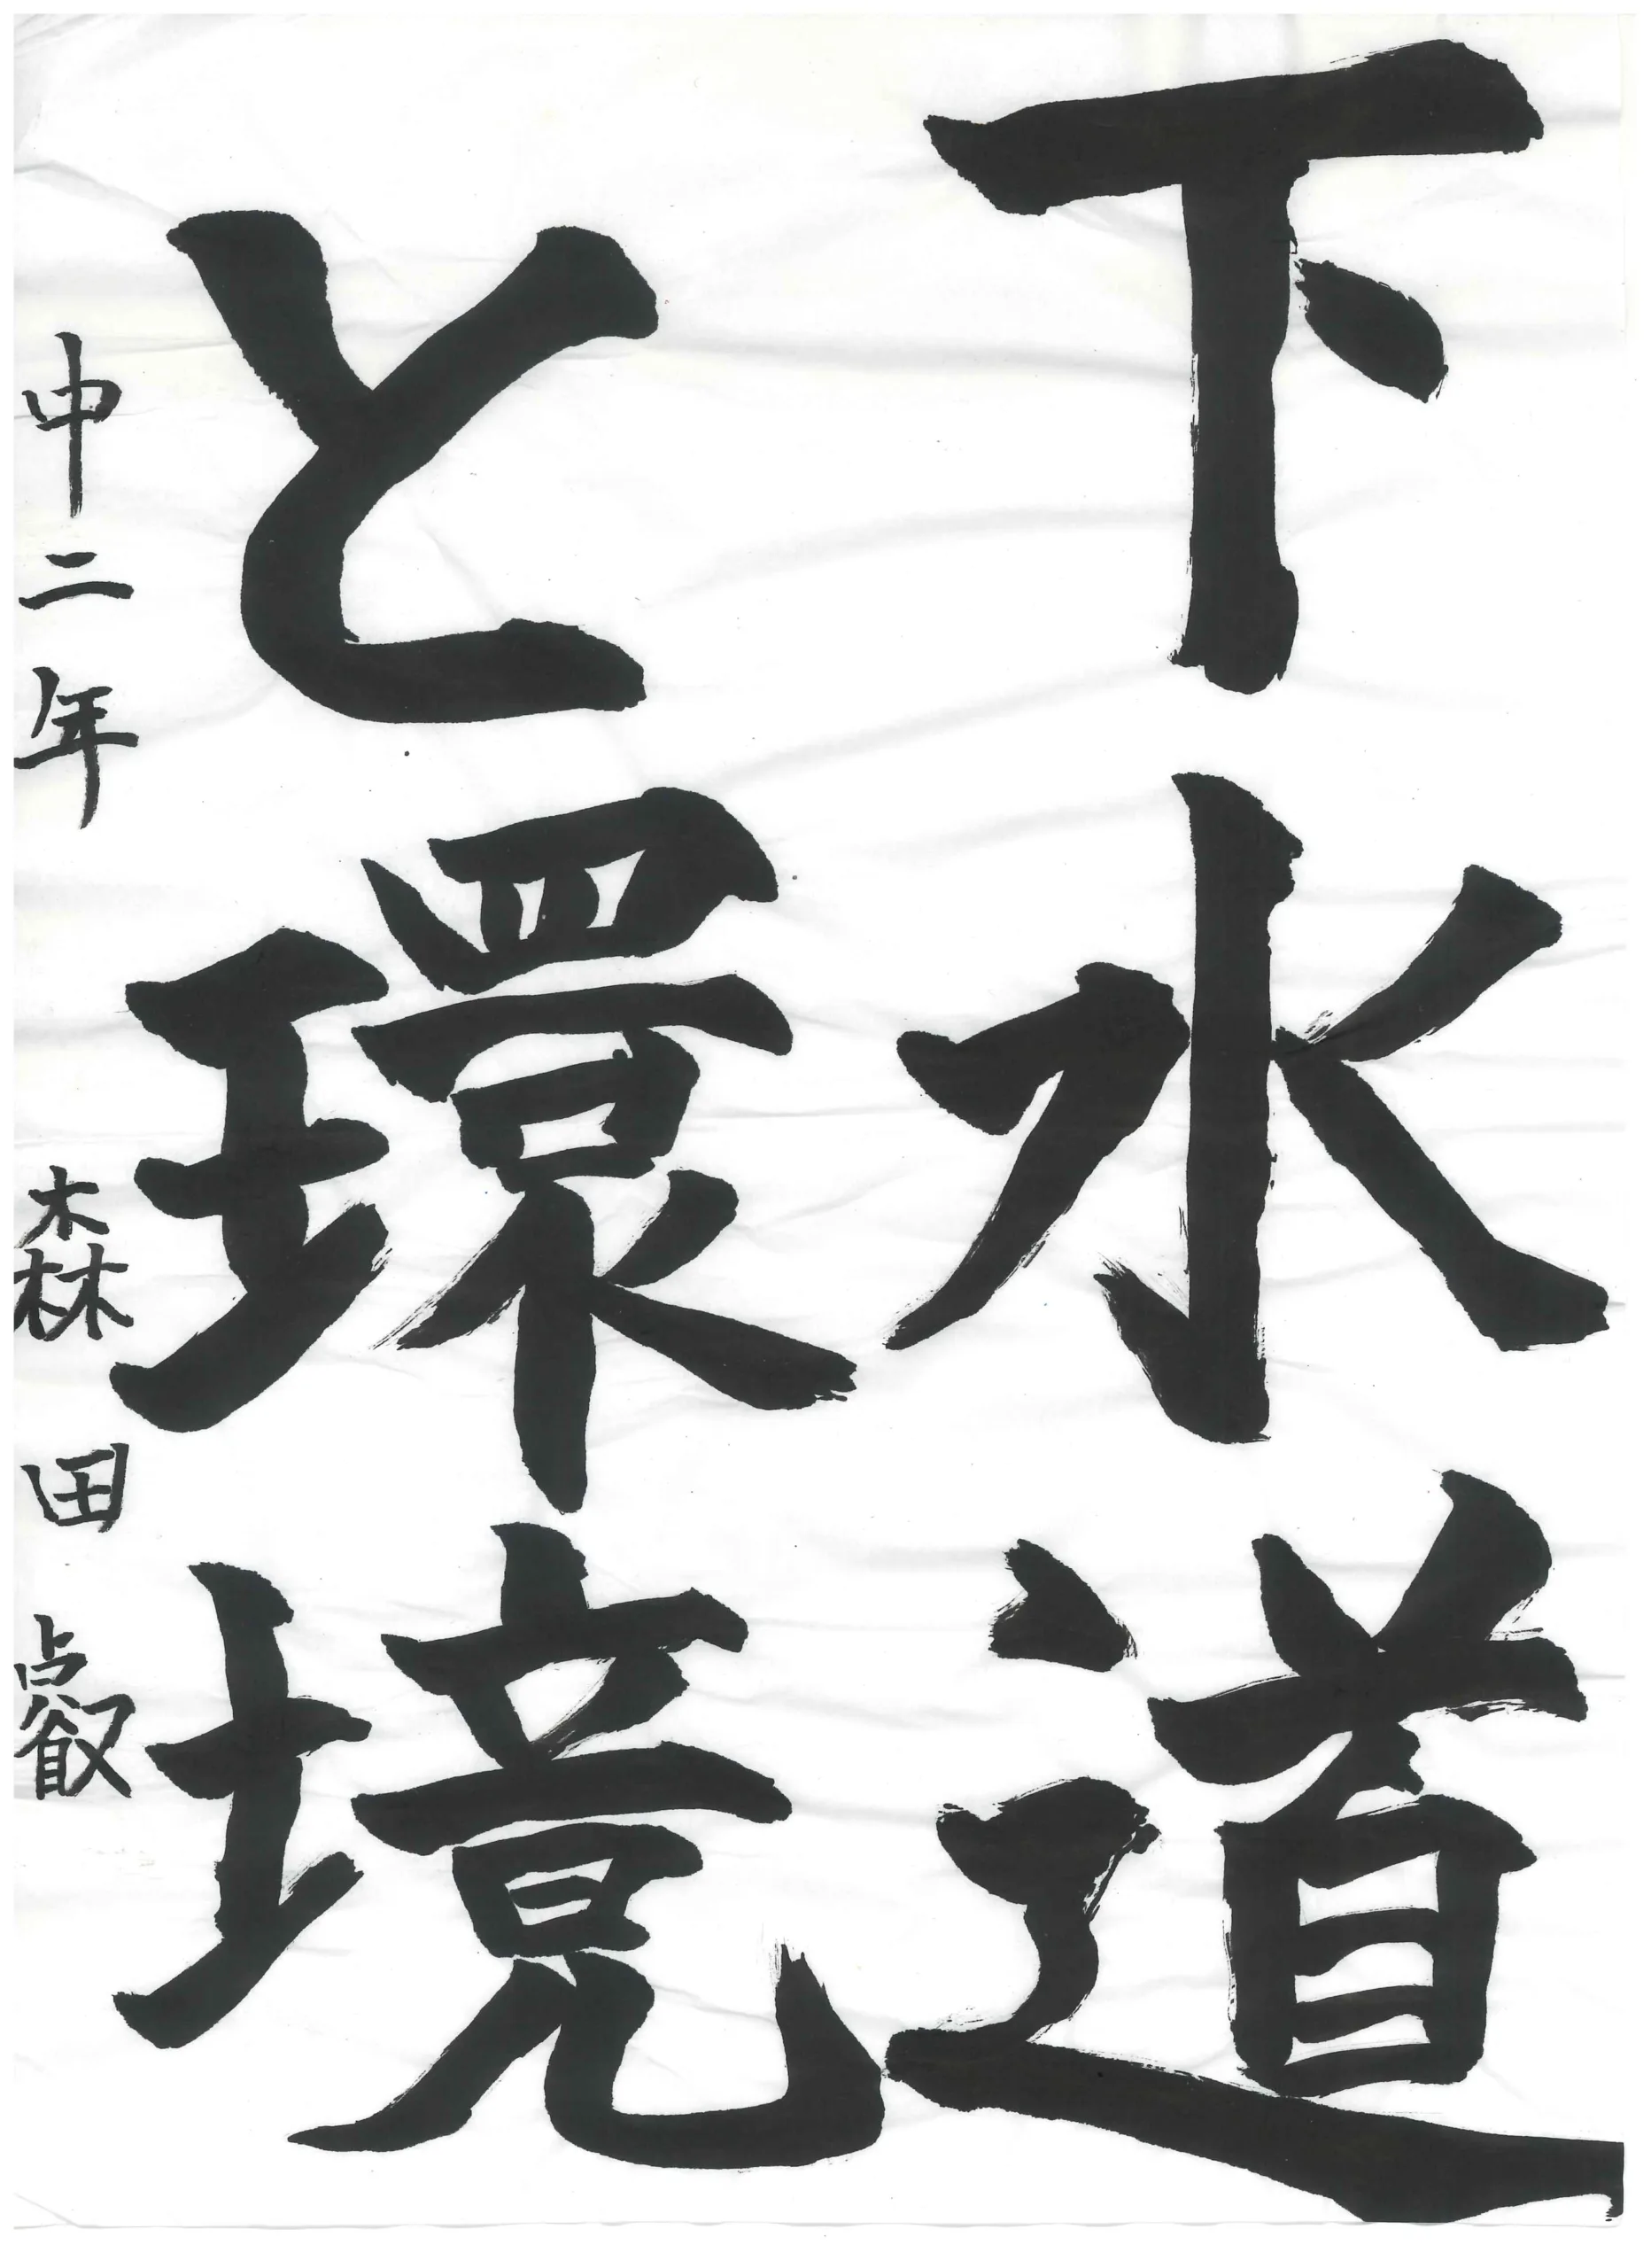 下水道
と環境
中二年 森田叡